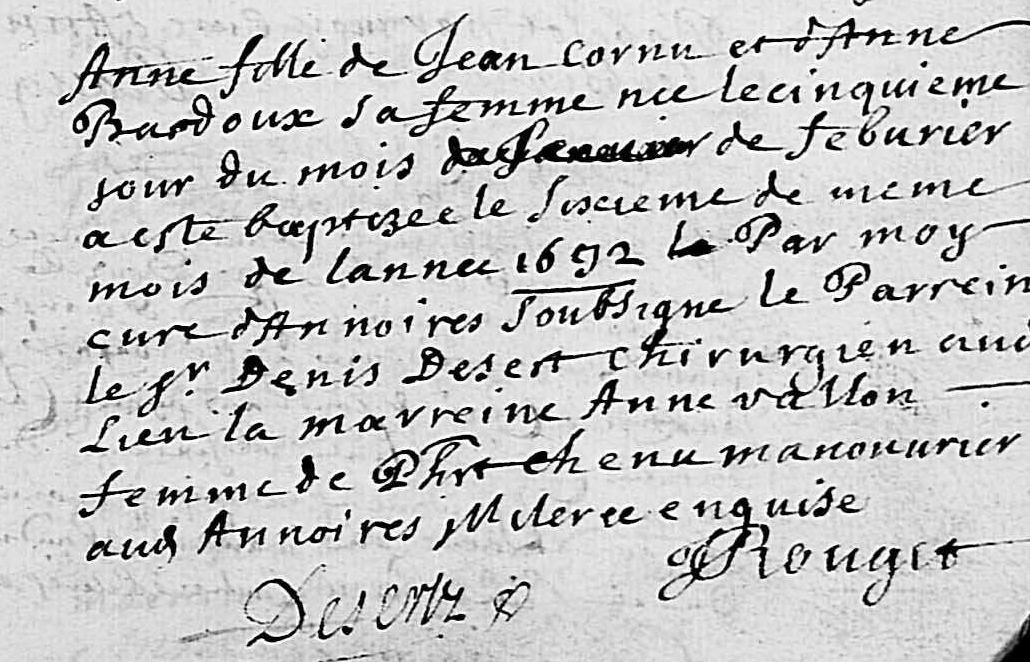 Anne fille de Jean Cornu et d'Anne
Bardoux sa femme nee le cinquieme
jour du mois de Januier de feburier
a esté baptizee le sixieme de meme
mois de lannee 1692 le Par moy
curé d'Annoires soubsigne le Parrein
le Sr Denis Desert chirurgien aud
Lieu la marreine Anne vallon
femme de Phrt chenu manouurier
aud Annoires enquise
Rouget
Desertz